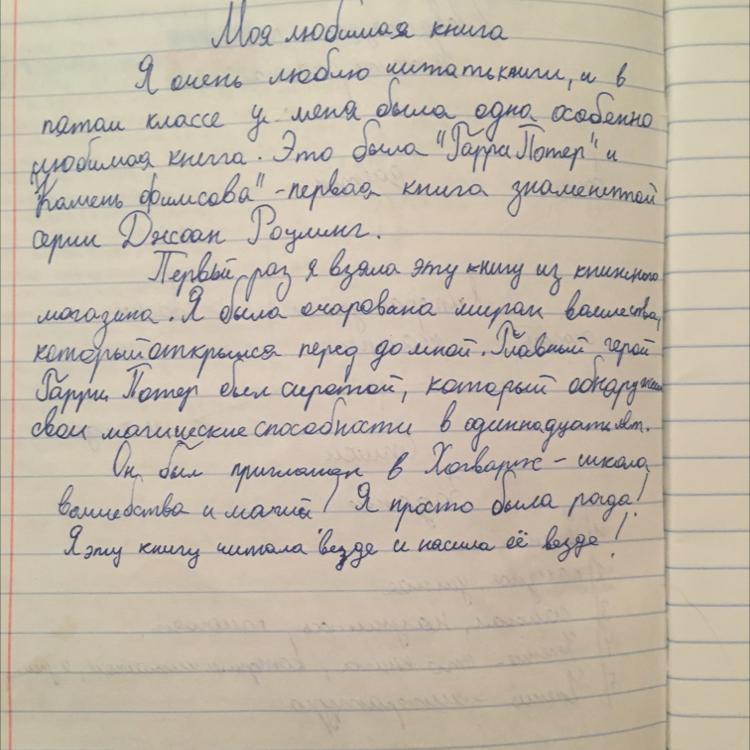 Моя любимая книга
Я очень люблю читать книги, и в
пятом классе у меня была одна особенно
любимая книга. Это была "Гарри Потер" и
"Камень филисова" - первая книга знаменитой
серии Джоан Роулинг.
Первый раз я взяла эту книгу из книжного
магазина. Я была очарована миром волшества,
который открылся перед до мной. Главный герой
Гарри Потер был сиротой, который обнаружил
свои магические способности в одиннадцать лет.
Он был приглашен в Хогвартж - школа
волшебства и магий! Я просто была рада!
Я эту книгу читала везде и насила её везде!